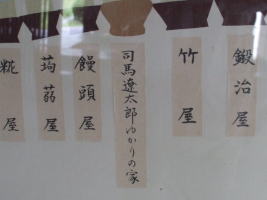 鍛冶屋
竹屋
司馬遼太郎ゆかりの家
饅頭屋
蒟蒻屋
糀屋